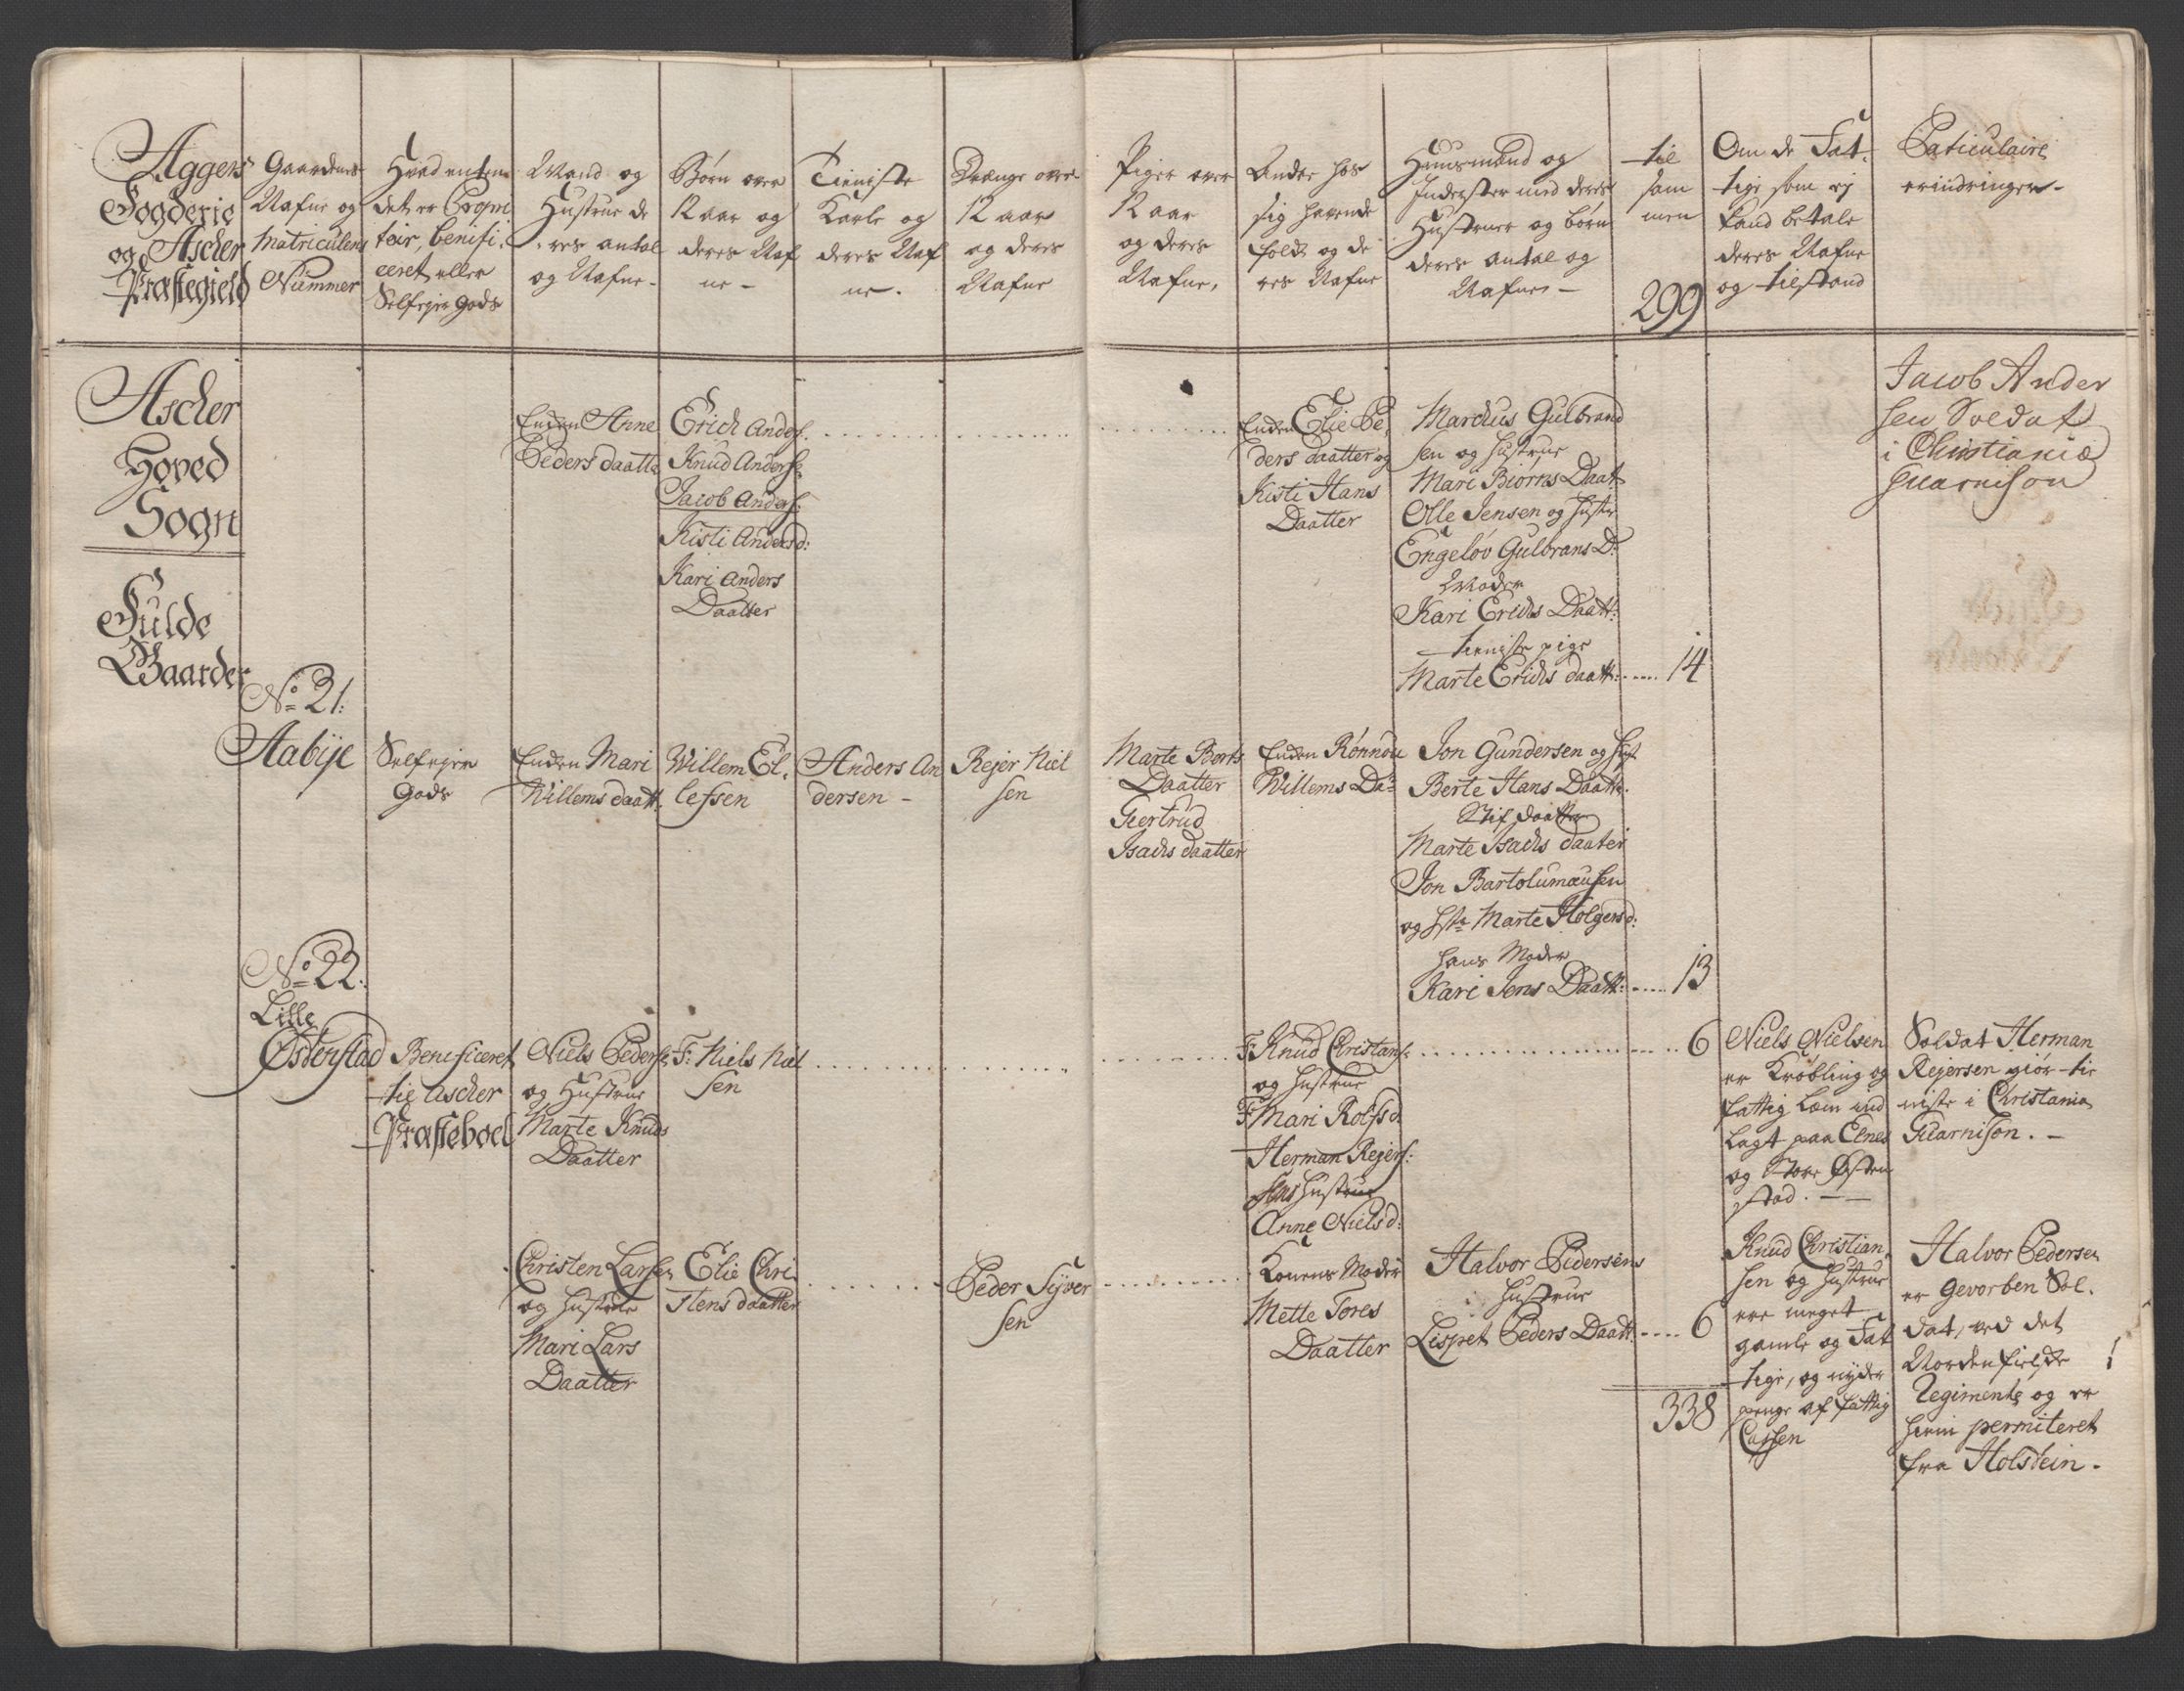 Aggers
Fogderie
og Ascher
Præstegield
Gaardenes
Nafne og
Matriculens
Nummer
Hvad enten
det er Propri
tair, benifi-
ceret eller
Selfeier gods
Mand og
Hustrue de
res antal
og Nafne-
Børn over
12 aar og
deres Naf
ne-
Tieniste
Karle og
deres Naf
ne.
Drenge over
12 aar
og deres
Nafne
Piger over
12 aar
og deres
Nafne,
Andre hos
sig havende
folck og de
res Nafne
Huusmænd og
Inderster med deres
Hustruer og børn
deres antal og
Nafne-
til
sam
men
299
Om de Fat-
tige som ej
kand betale
deres Nafne
og tilstand
Paticulaire
erindringer-
Ascher
Hoved
Sogn
Fulde
Gaarder
Enken Anne
Peders daatter
Erich Anders:
Knud Anderse:
Jacob Anders:
Kisti Andersd:
Kari Anders
Daatter
Enken Elie Pe,
ders daatter og
Kisti Hans
Daatter
Marchus Gulbrand
sen og Hustrue
Mari Biørns Daat
Olle Jensen og Hustr
Engeløv Gulbrans D:
Moder
Kari Erichs Daatt:
tieniste pige
Marte Erichs daatt: 14
Jacob Ander
sen Soldat
i Christiania
Guarnison
No 21:
Aabye
Selfeier
Gods
Enken Mari
Willems daatt.
Willem El.
lefsen
Anders An
dersen -
Rejer Niel
sen
Marte Borts
Daatter
Giertrud
Isachs daatter
Enken Rønnou
Willems Da:
Jon Gundersen og Hust
Berte Hans Daatt.
Stif daatter
Marte Isachs daater
Jon Bartolumæusen
og Hstr Marte Holgersd:
hans Moder
Kari Jens Daatt: 13
No 22:
Lille
Østenstad
Benificeret
til Ascher
Præsteboel
Niels Peders:
og Hustrue
Marte Knuds
Daatter
F: Niels Niel
sen
F: Knud Christians:
og Hustrue
F: Mari Rolfsd:
Herman Rejers:
sens Hustrue
Anne Nielsd:
6
Niels Nielsen
er Krøbling og
fattig Lem ind
lagt paa Elnes
og Store Østen
stad. -
Soldat Herman
Rejersen giør tie
niste i Christania
Guarnison. -
Christen Larsen
og Hustrue
Mari Lars
Daatter
Elie Chri
stens daatter
Peder Syver
sen
Konens Moder
Mette Tores
Daatter
Halvor Pedersens
Hustrue
Lispet Peders Daatt. 6
338
Knud Christian,
sen og Hustrue
ere meget
gamle og Fat
tige, og nyder
penge af fattig
Cassen
Halvor Pedersen
er Gevorben Sol.
dat, ved det
Nordenfieldske
Regimente og er
hiem permiteret
fra Holstein.